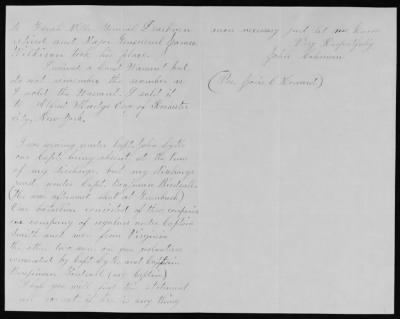 to Sarah Mills General Dearborn
and Major General James
Wilkinson took his place.
I received a Land Warrant but
do not remember the number as
I sold the Warrant. I sold it
to Albert Esq of Rochester
City, New York.
I was serving under Capt John Lytle
our Capt being absent at the time
of my discharge, but my discharge
read under Capt. Benjamin Birdsall
(He was afterward shot at Greenbush)
Our battalion consisted of three companies
one company of regulars under Captain
Smith and men from Virginia
the other two were on year volunteers
commanded by Capt Lytle and Captain
Benjamin Birdsall (my Captain)
I hope you will find this statement
all correct is there is any thing
more necessary just let me know
Very Respectfully
John
(Per Josie C )